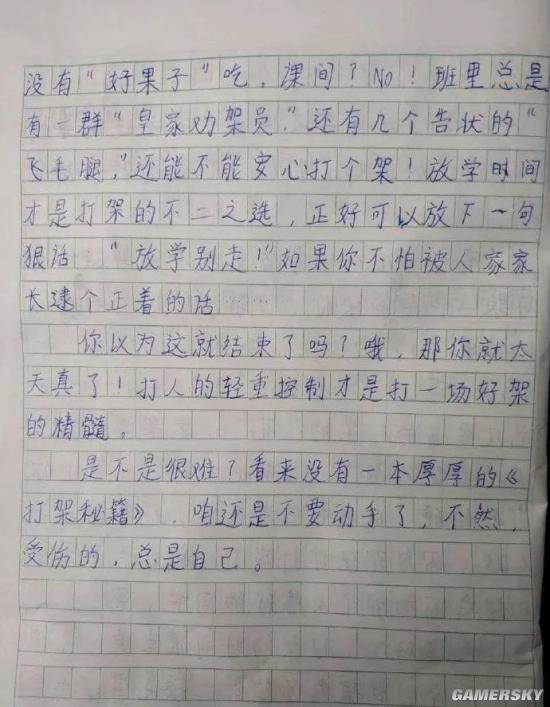 没有“好果子”吃，课间？No！班里总是
有一群“皇家劝架员”还有几个告状的“
飞毛腿”还能不能安心打个架！放学时间
才是打架的不二之选，正好可以放下一句
狠话 “放学别走！”如果你不怕被人家家
长逮个正着的话……
你以为这就结束了吗？哦，那你就太
天真了！打人的轻重控制才是打一场好架
的精髓。
是不是很难？看来没有一本厚厚的《
打架秘籍》，咱还是不要动手了，不然，
受伤的，总是自己。
GAMERSKY